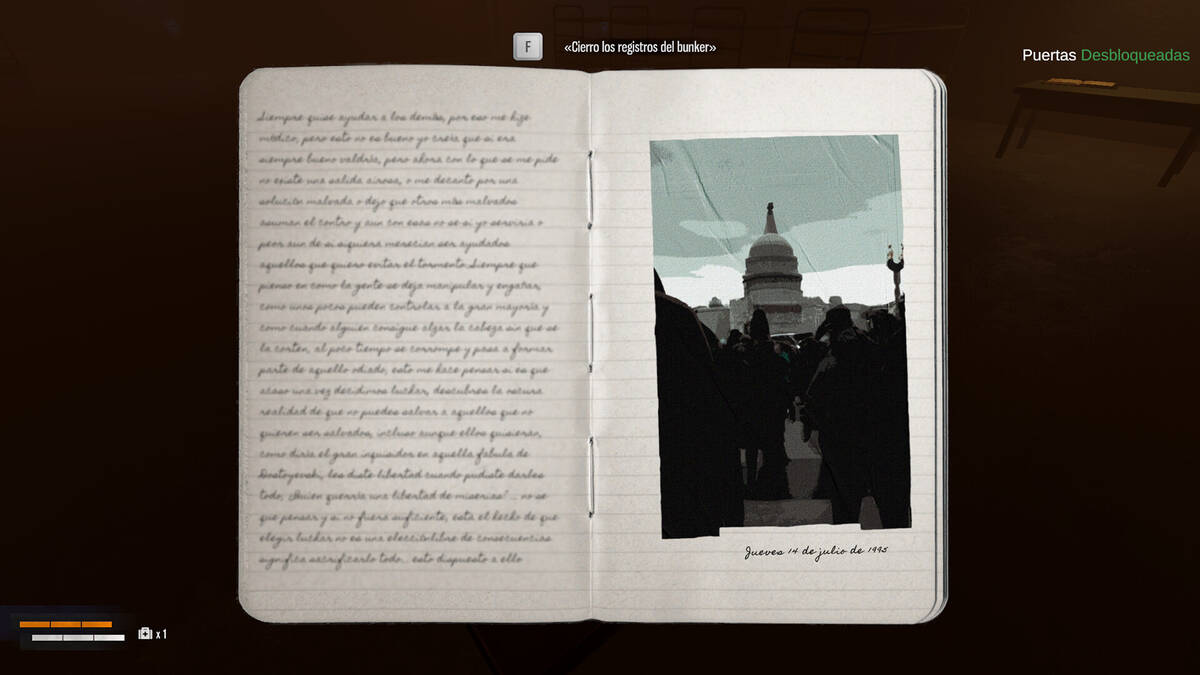 F
«Cierro los registros del bunker»
Puertas Desbloqueadas
Siempre quise ayudar a los demás, por eso me hize
médico, pero esto no es bueno yo creía que si era
siempre bueno valdría, pero ahora con lo que se me pide
no existe una salida airosa, o me decanto por una
solución malvada o dejo que otros más malvados
asuman el contro y aun con esas no se si yo serviria o
peor aun de si siquiera merecian ser ayudados
aquellos que quiero evitar el tormento.Siempre que
pienso en como la gente se deja manipular y engañar,
como unos pocos pueden controlar a la gran mayoría y
como cuando alguien consigue alzar la cabeza sin que se
la corten, al poco tiempo se corrompe y pasa a formar
parte de aquello odiado, esto me hace pensar si es que
acaso una vez decidimos luchar, descubres la oscura
realidad de que no puedes salvar a aquellos que no
quieren ser salvados, incluso aunque ellos quisieran,
como diría el gran inquisidor en aquella fabula de
Dostoyevski, les diste libertad cuando pudiste darles
todo, ¿Quien querría una libertad de miserias?... no se
que pensar y si no fuera suficiente, está el hecho de que
elegir luchar no es una elección libre de consecuencias
significa sacrificarlo todo... esto dispuesto a ello
Jueves 14 de julio de 1995
x 1